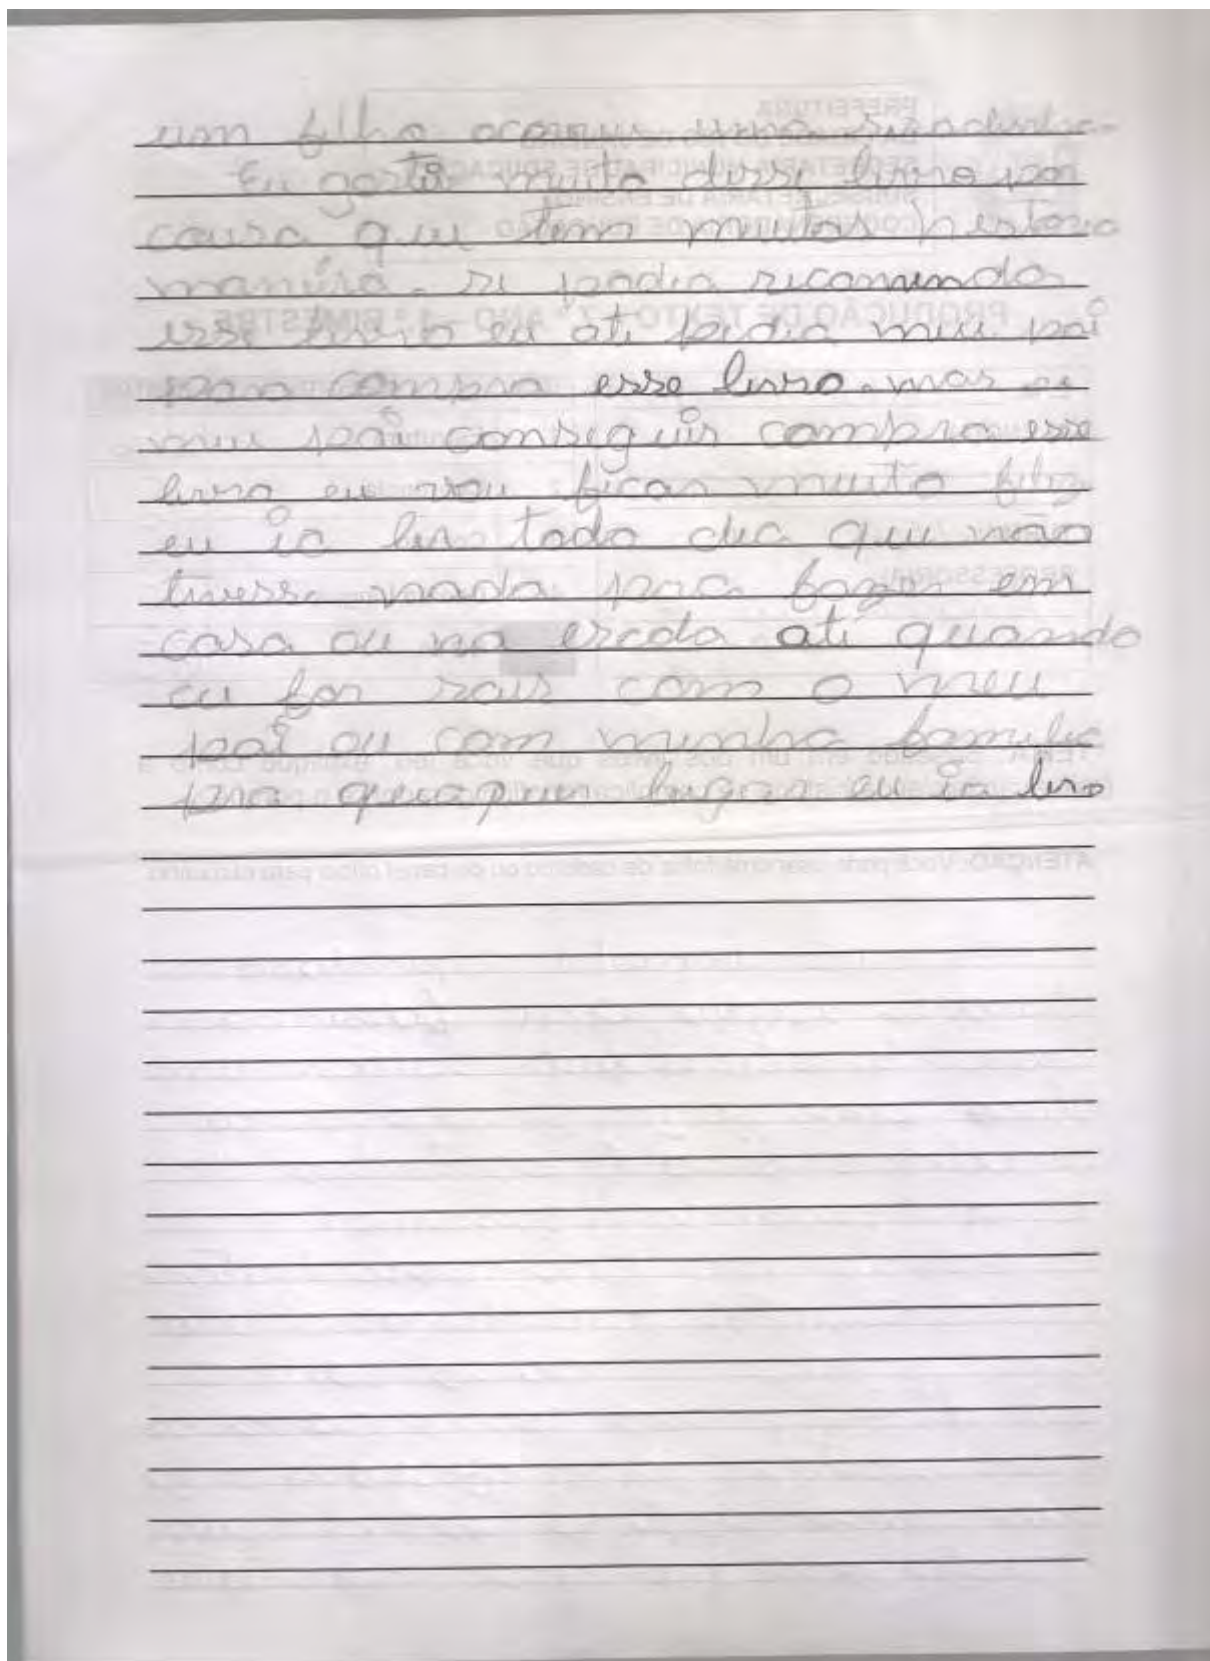 um filho
Eu gostei muito desse livro por
causa que tem muitas historia
maneira. se podia recomenda
esse livro eu ate pidia meu pai
para compra esse livro. mas se
meu pai conseguir compra esse
livro eu vou ficar muito feliz
eu ia ler todo dia que não
tivesse nada pra fazer em
casa ou na escola até quando
eu for sair com o meu
pai ou com minha familia
pra quauquer lugar eu ia ler